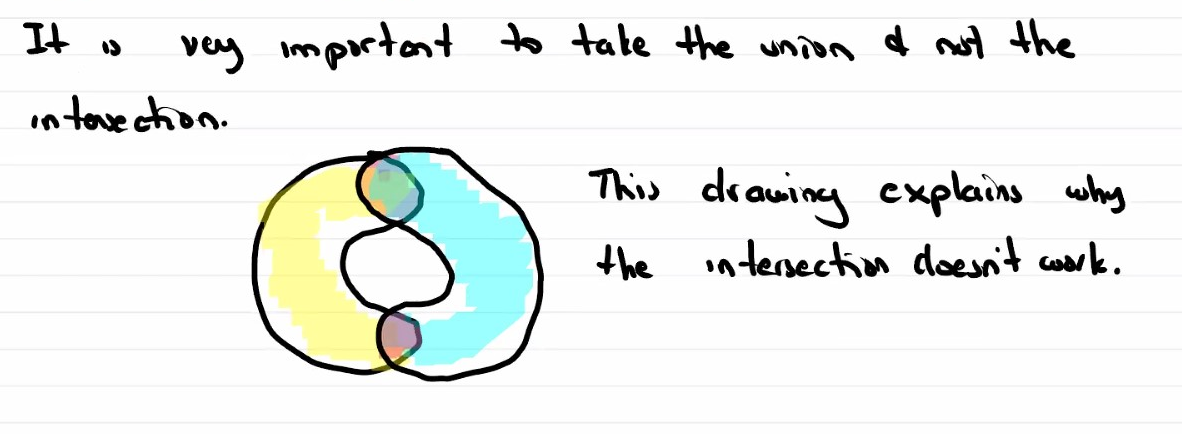 It is very important to take the union & not the
intersection.
This drawing explains why
the intersection doesn't work.